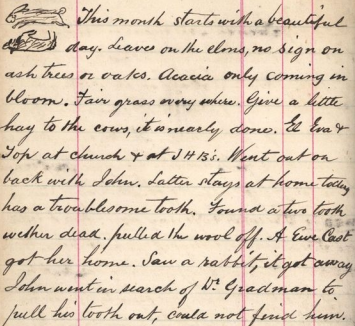 This month starts with a beautiful
day. Leaves on the elms, no sign on
ash trees or oaks. Acacia only coming in
bloom. Fair grass every where. Give a little
hay to the cows, it is nearly done. El Eva &
Top at church & at J H B's. Went out on
back with John. Latter stays at home today
has a troublesome tooth. Found a two tooth
wether dead. pulled the wool off. A Ewe Cast
got her home. Saw a rabbit, it got away
John went in search of Dr. Gradman to
pull his tooth out, could not find him.